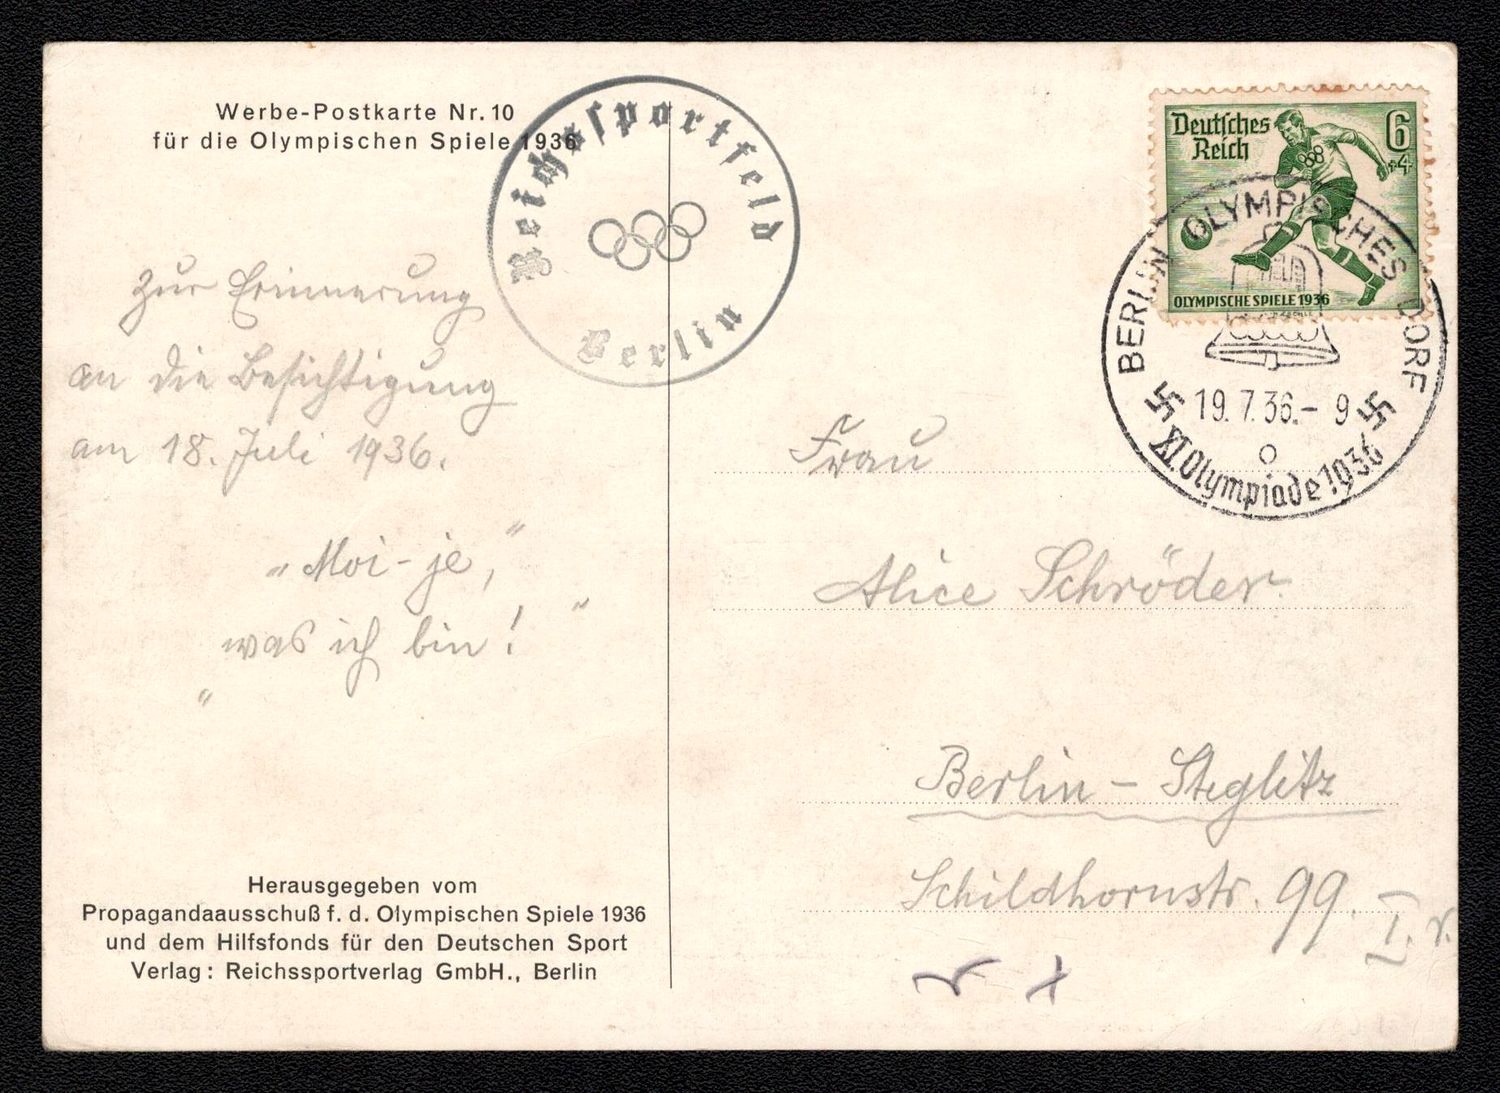 Werbe-Postkarte Nr. 10
für die Olympischen Spiele 1936
Reichssportfeld
Berlin
Deutsches
Reich
6
+4
OLYMPISCHE SPIELE 1936
BERLIN OLYMPISCHES DORF
19.7.36.- 9
XI Olympiade 1936
Zur Erinnerung
an die Besichtigung
am 18. Juli 1936.
"Moi-je,"
"was ich bin!"
Frau
Alice Schröder
Berlin - Steglitz
Schildhornstr. 99. I. r.
Herausgegeben vom
Propagandaausschuß f. d. Olympischen Spiele 1936
und dem Hilfsfonds für den Deutschen Sport
Verlag: Reichssportverlag GmbH., Berlin